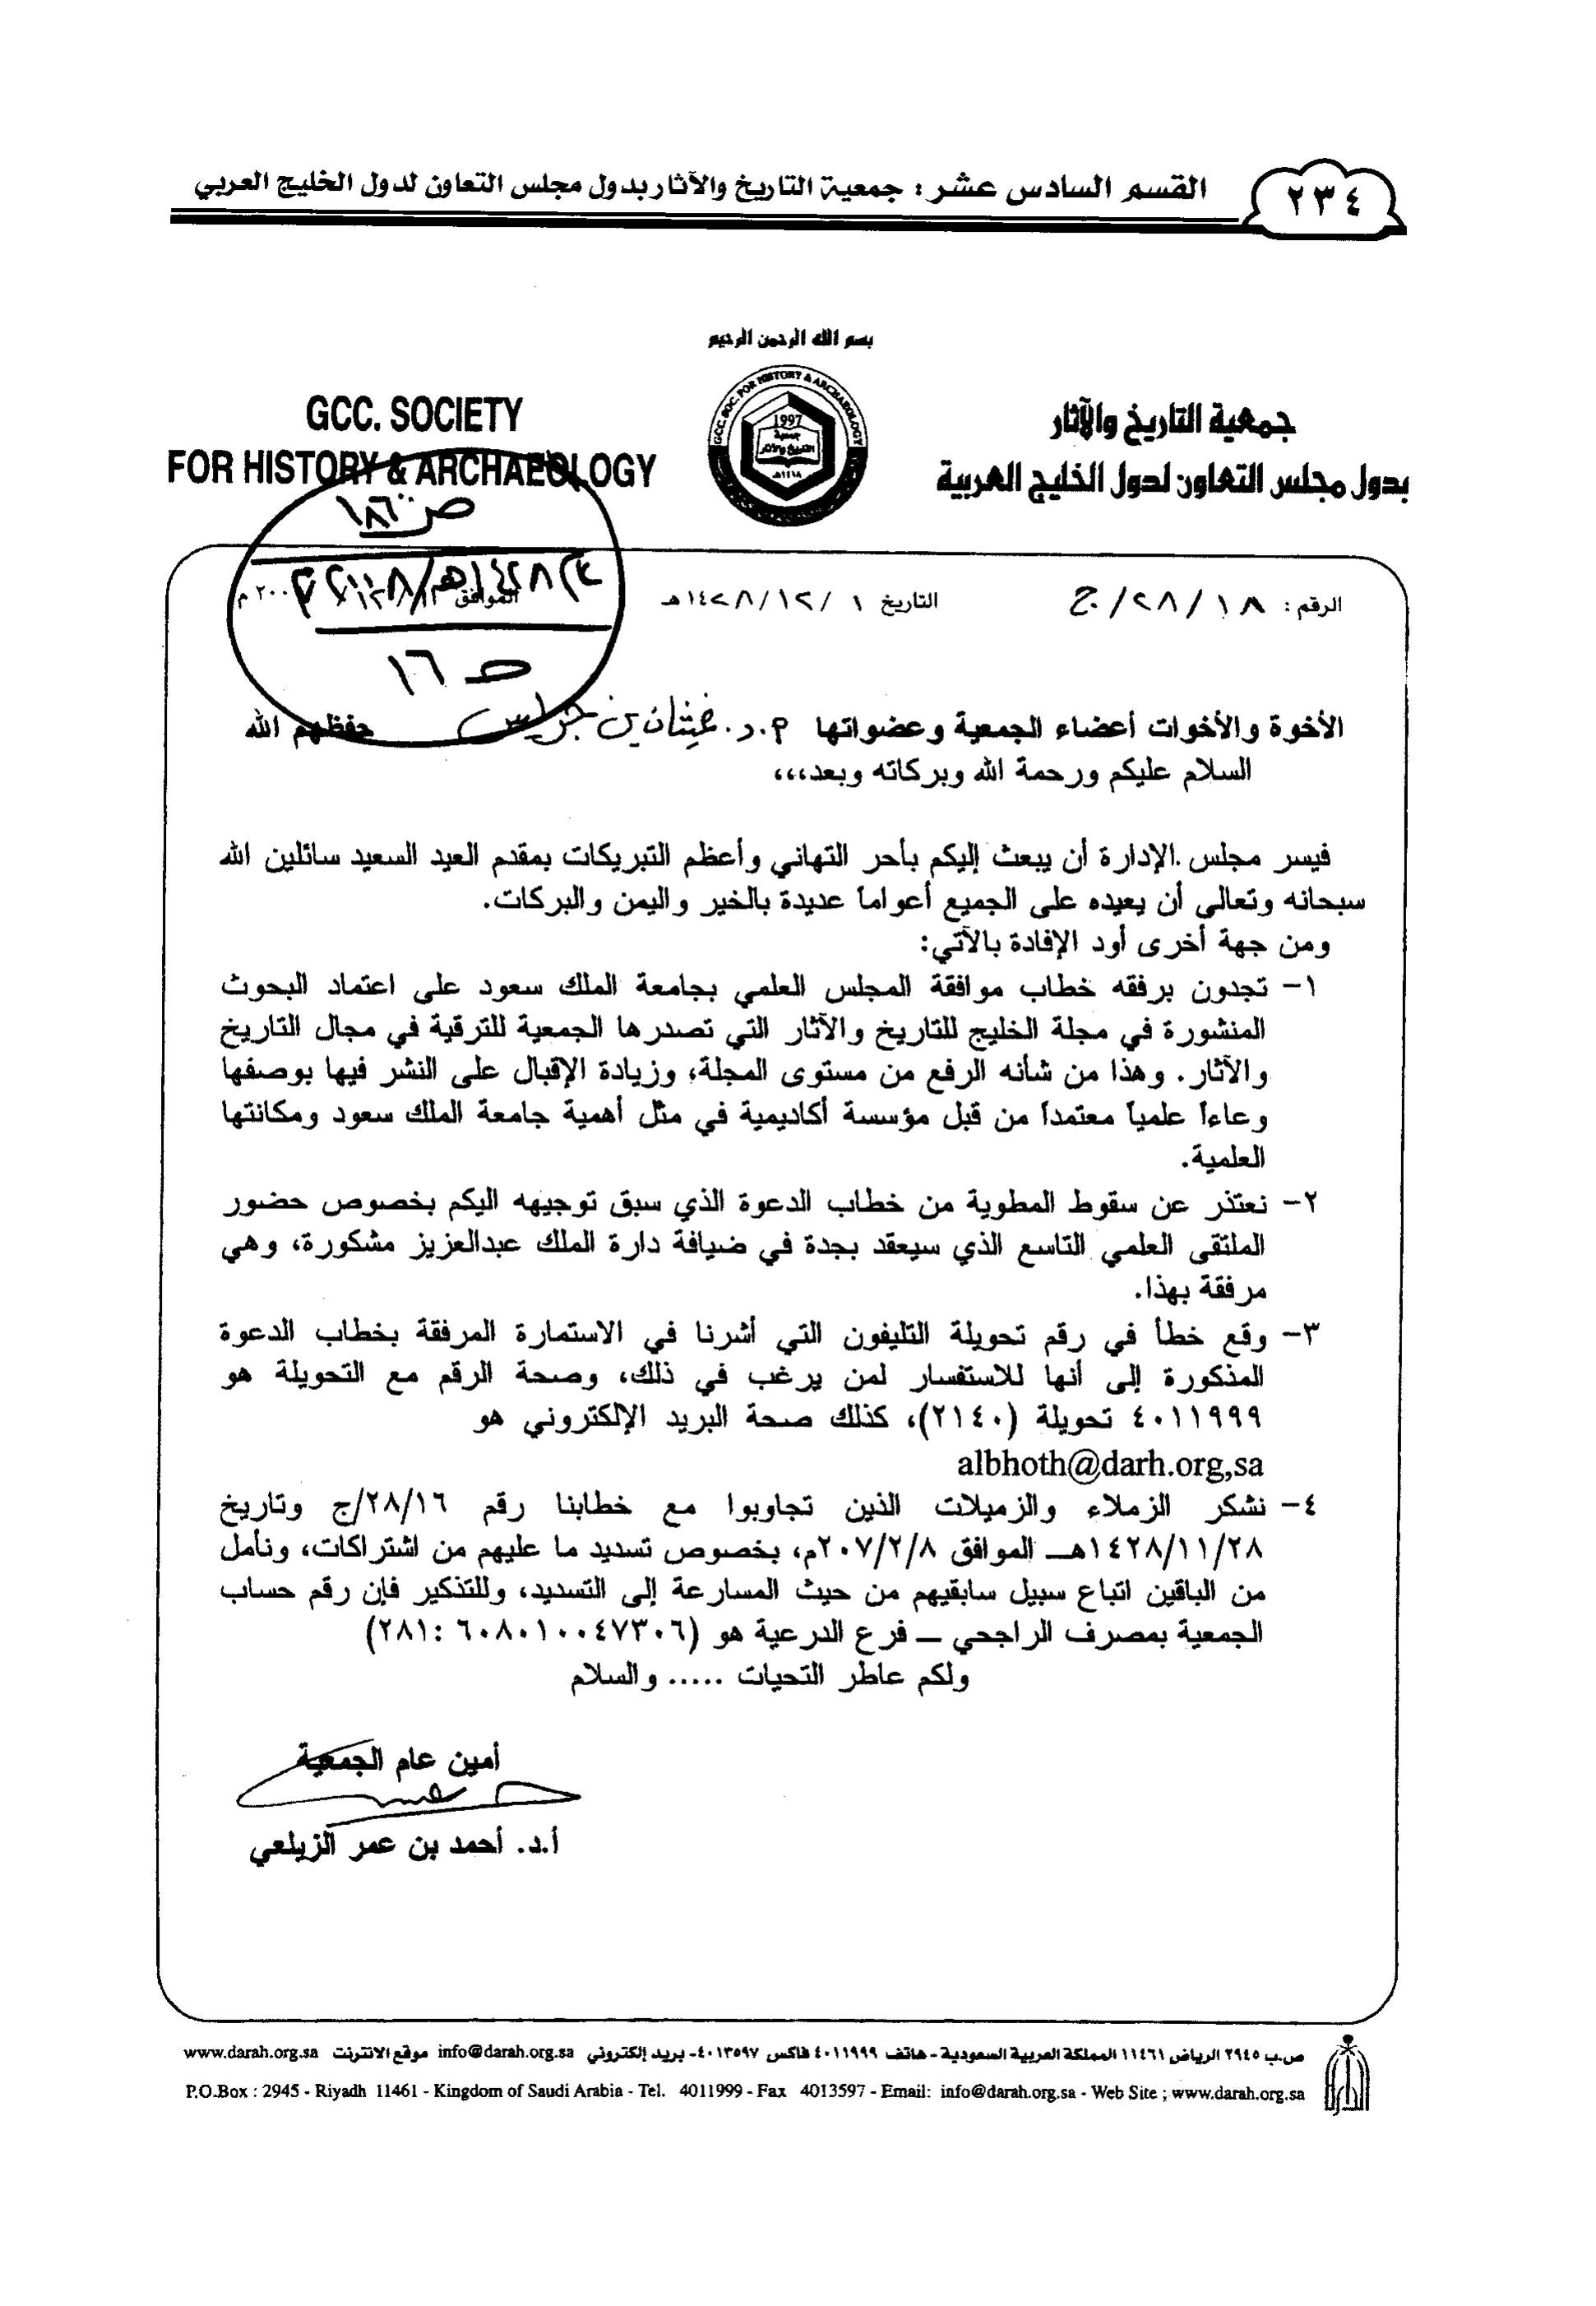 القسم السادس عشر : جمعية التاريخ والآثار بدول مجلس التعاون لدول الخليج العربي
٢٣٤
بسم الله الرحمن الرحيم
GCC. SOCIETY
FOR HISTORY & ARCHAEOLOGY
GCC. SOC. FOR HISTORY & ARCHAEOLOGY
1997
جمعية
التاريخ والآثار
١٤١٨هـ
جمعية التاريخ والآثار
بدول مجلس التعاون لدول الخليج العربية
ص ١٨٦
الرقم : ١٨/ ٢٨/ ج التاريخ ١ /١٢/ ١٤٢٨هـ الموافق ٢٠٠ م
ص ١٦
الأخوة والأخوات أعضاء الجمعية وعضواتها م.د. غيثان بن جريس حفظهم الله
السلام عليكم ورحمة الله وبركاته وبعد،،،
فيسر مجلس الإدارة أن يبعث إليكم بأحر التهاني وأعظم التبريكات بمقدم العيد السعيد سائلين الله
سبحانه وتعالى أن يعيده على الجميع أعواماً عديدة بالخير واليمن والبركات.
ومن جهة أخرى أود الإفادة بالآتي:
١- تجدون برفقه خطاب موافقة المجلس العلمي بجامعة الملك سعود على اعتماد البحوث
المنشورة في مجلة الخليج للتاريخ والآثار التي تصدرها الجمعية للترقية في مجال التاريخ
والآثار. وهذا من شأنه الرفع من مستوى المجلة، وزيادة الإقبال على النشر فيها بوصفها
وعاءاً علمياً معتمداً من قبل مؤسسة أكاديمية في مثل أهمية جامعة الملك سعود ومكانتها
العلمية.
٢- نعتذر عن سقوط المطوية من خطاب الدعوة الذي سبق توجيهه اليكم بخصوص حضور
الملتقى العلمي التاسع الذي سيعقد بجدة في ضيافة دارة الملك عبدالعزيز مشكورة، وهي
مرفقة بهذا.
٣- وقع خطأ في رقم تحويلة التليفون التي أشرنا في الاستمارة المرفقة بخطاب الدعوة
المذكورة إلى أنها للاستفسار لمن يرغب في ذلك، وصحة الرقم مع التحويلة هو
٤٠١١٩٩٩ تحويلة (٢١٤٠)، كذلك صحة البريد الإلكتروني هو
albhoth@darh.org,sa
٤- نشكر الزملاء والزميلات الذين تجاوبوا مع خطابنا رقم ٢٨/١٦/ج وتاريخ
١٤٢٨/١١/٢٨هـ الموافق ٢٠٧/٢/٨م، بخصوص تسديد ما عليهم من اشتراكات، ونأمل
من الباقين اتباع سبيل سابقيهم من حيث المسارعة إلى التسديد، وللتذكير فإن رقم حساب
الجمعية بمصرف الراجحي – فرع الدرعية هو (٦٠٨٠١٠٠٤٧٣٠٦ :٢٨١)
ولكم عاطر التحيات ..... والسلام
أمين عام الجمعية
أ.د. أحمد بن عمر الزيلعي
ص.ب ٢٩٤٥ الرياض ١١٤٦١ المملكة العربية السعودية - هاتف ٤٠١١٩٩٩ فاكس ٤٠١٣٥٩٧- بريد إلكتروني info@darah.org.sa موقع الانترنت www.darah.org.sa
P.O.Box : 2945 - Riyadh 11461 - Kingdom of Saudi Arabia - Tel. 4011999 - Fax 4013597 - Email: info@darah.org.sa - Web Site ; www.darah.org.sa